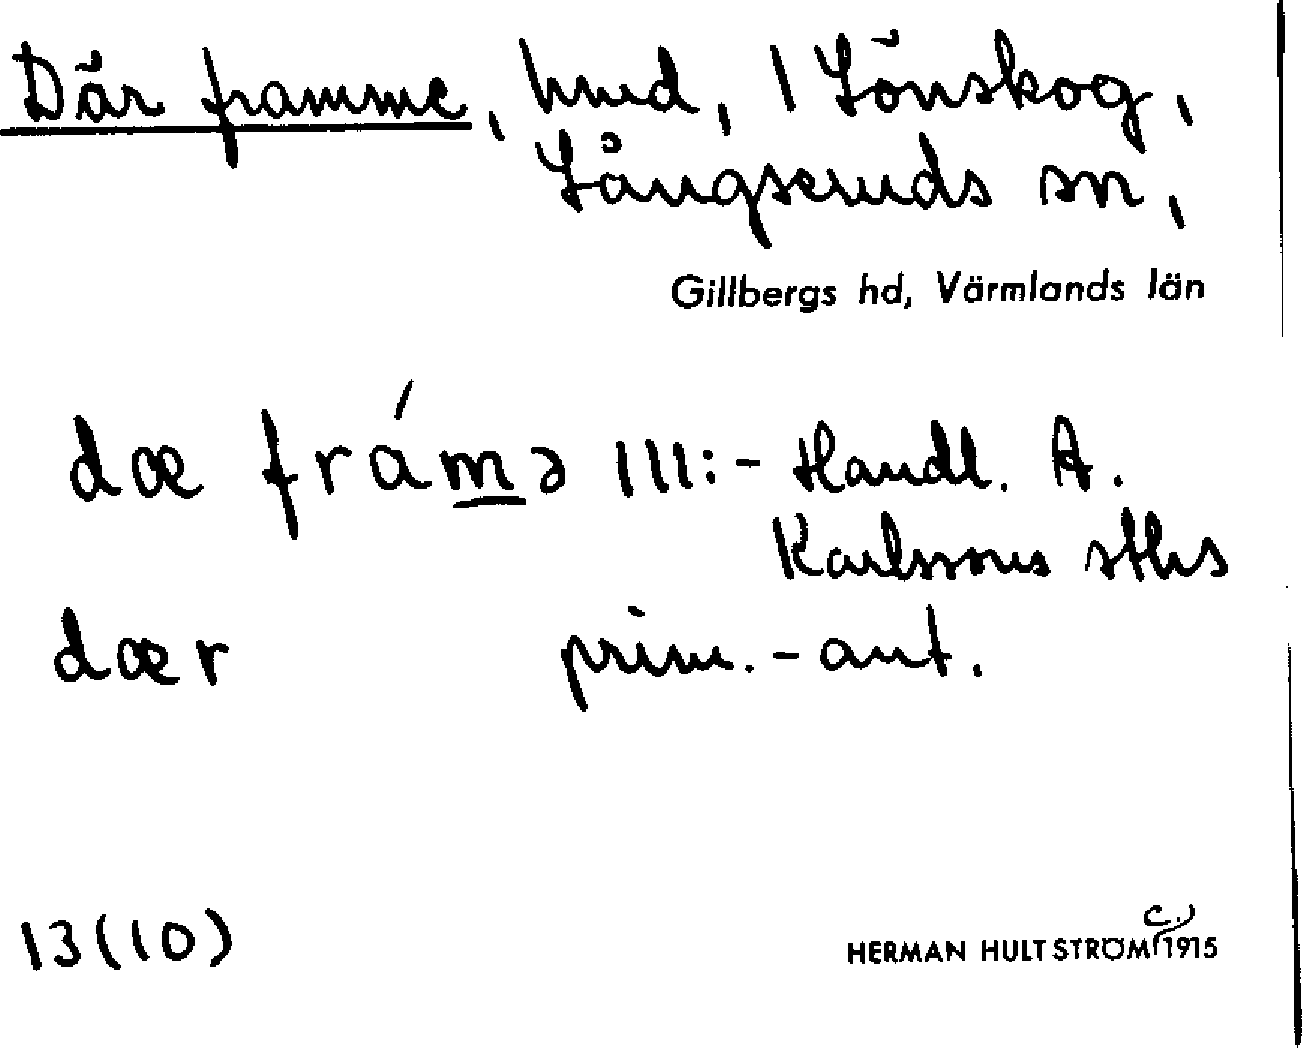 Där framme, hmd, 1 Lönskog,
Långseruds sn,
Gillbergs hd, Värmlands län
dæ frámə III:- Handl. A.
Karlssons sths
dær prim.-ant.
13(10)
HERMAN HULTSTRÖM (c.) 1915